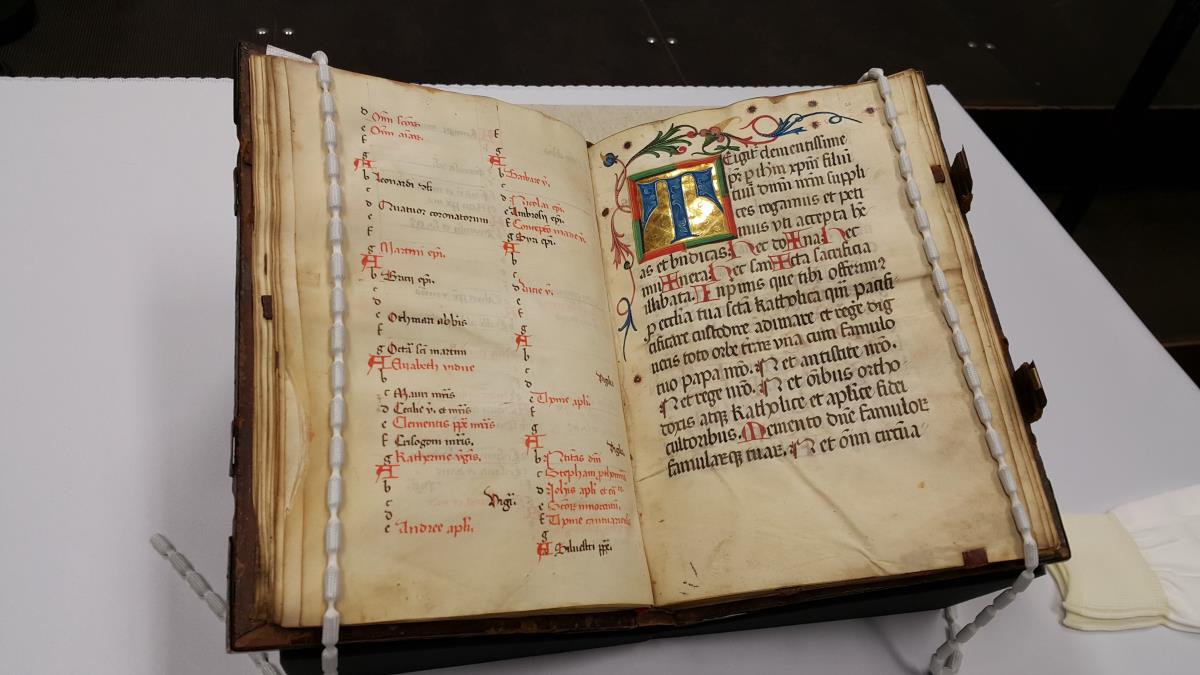 d Om̄ sctor̄.
e Om̄ aīar̄.
f
g
A
b
c Leonardi ɔf.
d
e Quatuor coronatorum
f
g Martini ep̄i.
A
b Bricii ep̄i.
c
d
e
f Othmari abb̄is
g Octā sc̄i martini
A Elizabeth vidue
b
c Mauri mr̄is
d Cecilie v̄. et mr̄is
e Clementis pp̄e mr̄is
f Crisogoni mr̄is.
g Katherine v̄gis.
A
b
c
d Vigīl.
e Andree apl̄i.
f
g
A
b Barbare v̄.
c
d Nicolai ep̄i.
e Ambrosij ep̄i.
f Conceptō marie v̄.
g Syri ep̄i.
A
b
c
d Lucie v̄.
e
f
g
A
b
c
d Vigīl.
e Thome apl̄i.
f
g
A Vigīl.
b Natītas dn̄i
c Stephani p̄thom̄ris
d Joh̄is apl̄i et eū
e Sctor̄ innocentū.
f Thome cantuariēsis
g
A Silvestri pp̄e.
TEigit̄ clementissime
pr̄ p ih̄m xp̄m filiū
tuū dn̄m nr̄m suppli
ces rogamus et peti
mus vti accepta he
as et b̄ndicas. Hec do✠na. Hec
mu✠nera. Hec san✠cta sacrificia
illibata. Inp̄mis que tibi offerim⁹
ꝓ eccl̄ia tua sctā katholica quā pacifi
cificare custodire adunare et rege dig
neris toto orbe t̄rar̄ vna cum famulo
tuo papa nr̄o. N et antistite nr̄o.
N et rege nr̄o. N et om̄ibus ortho
doxis atqꝫ katholice et aplīce fidei
cultoribus. Memento dn̄e famulor̄
famularꝫqꝫ tuar̄. N et om̄ circūa